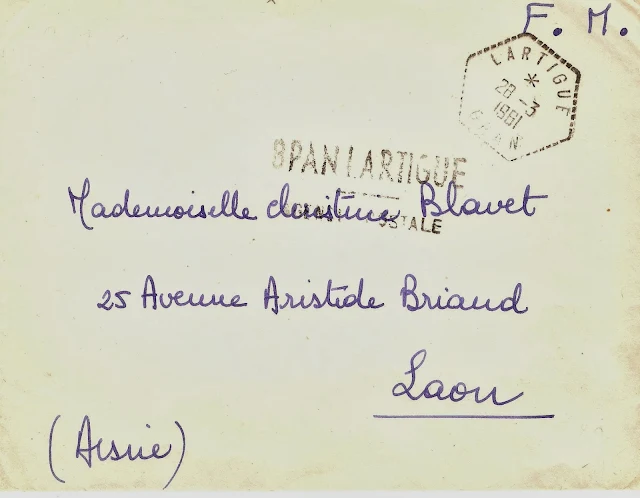 F. M.
LARTIGUE
*
28-3
1961
ORAN
BPAN LARTIGUE
Mademoiselle Christine Blavet
25 Avenue Aristide Briand
Laon
(Aisne)